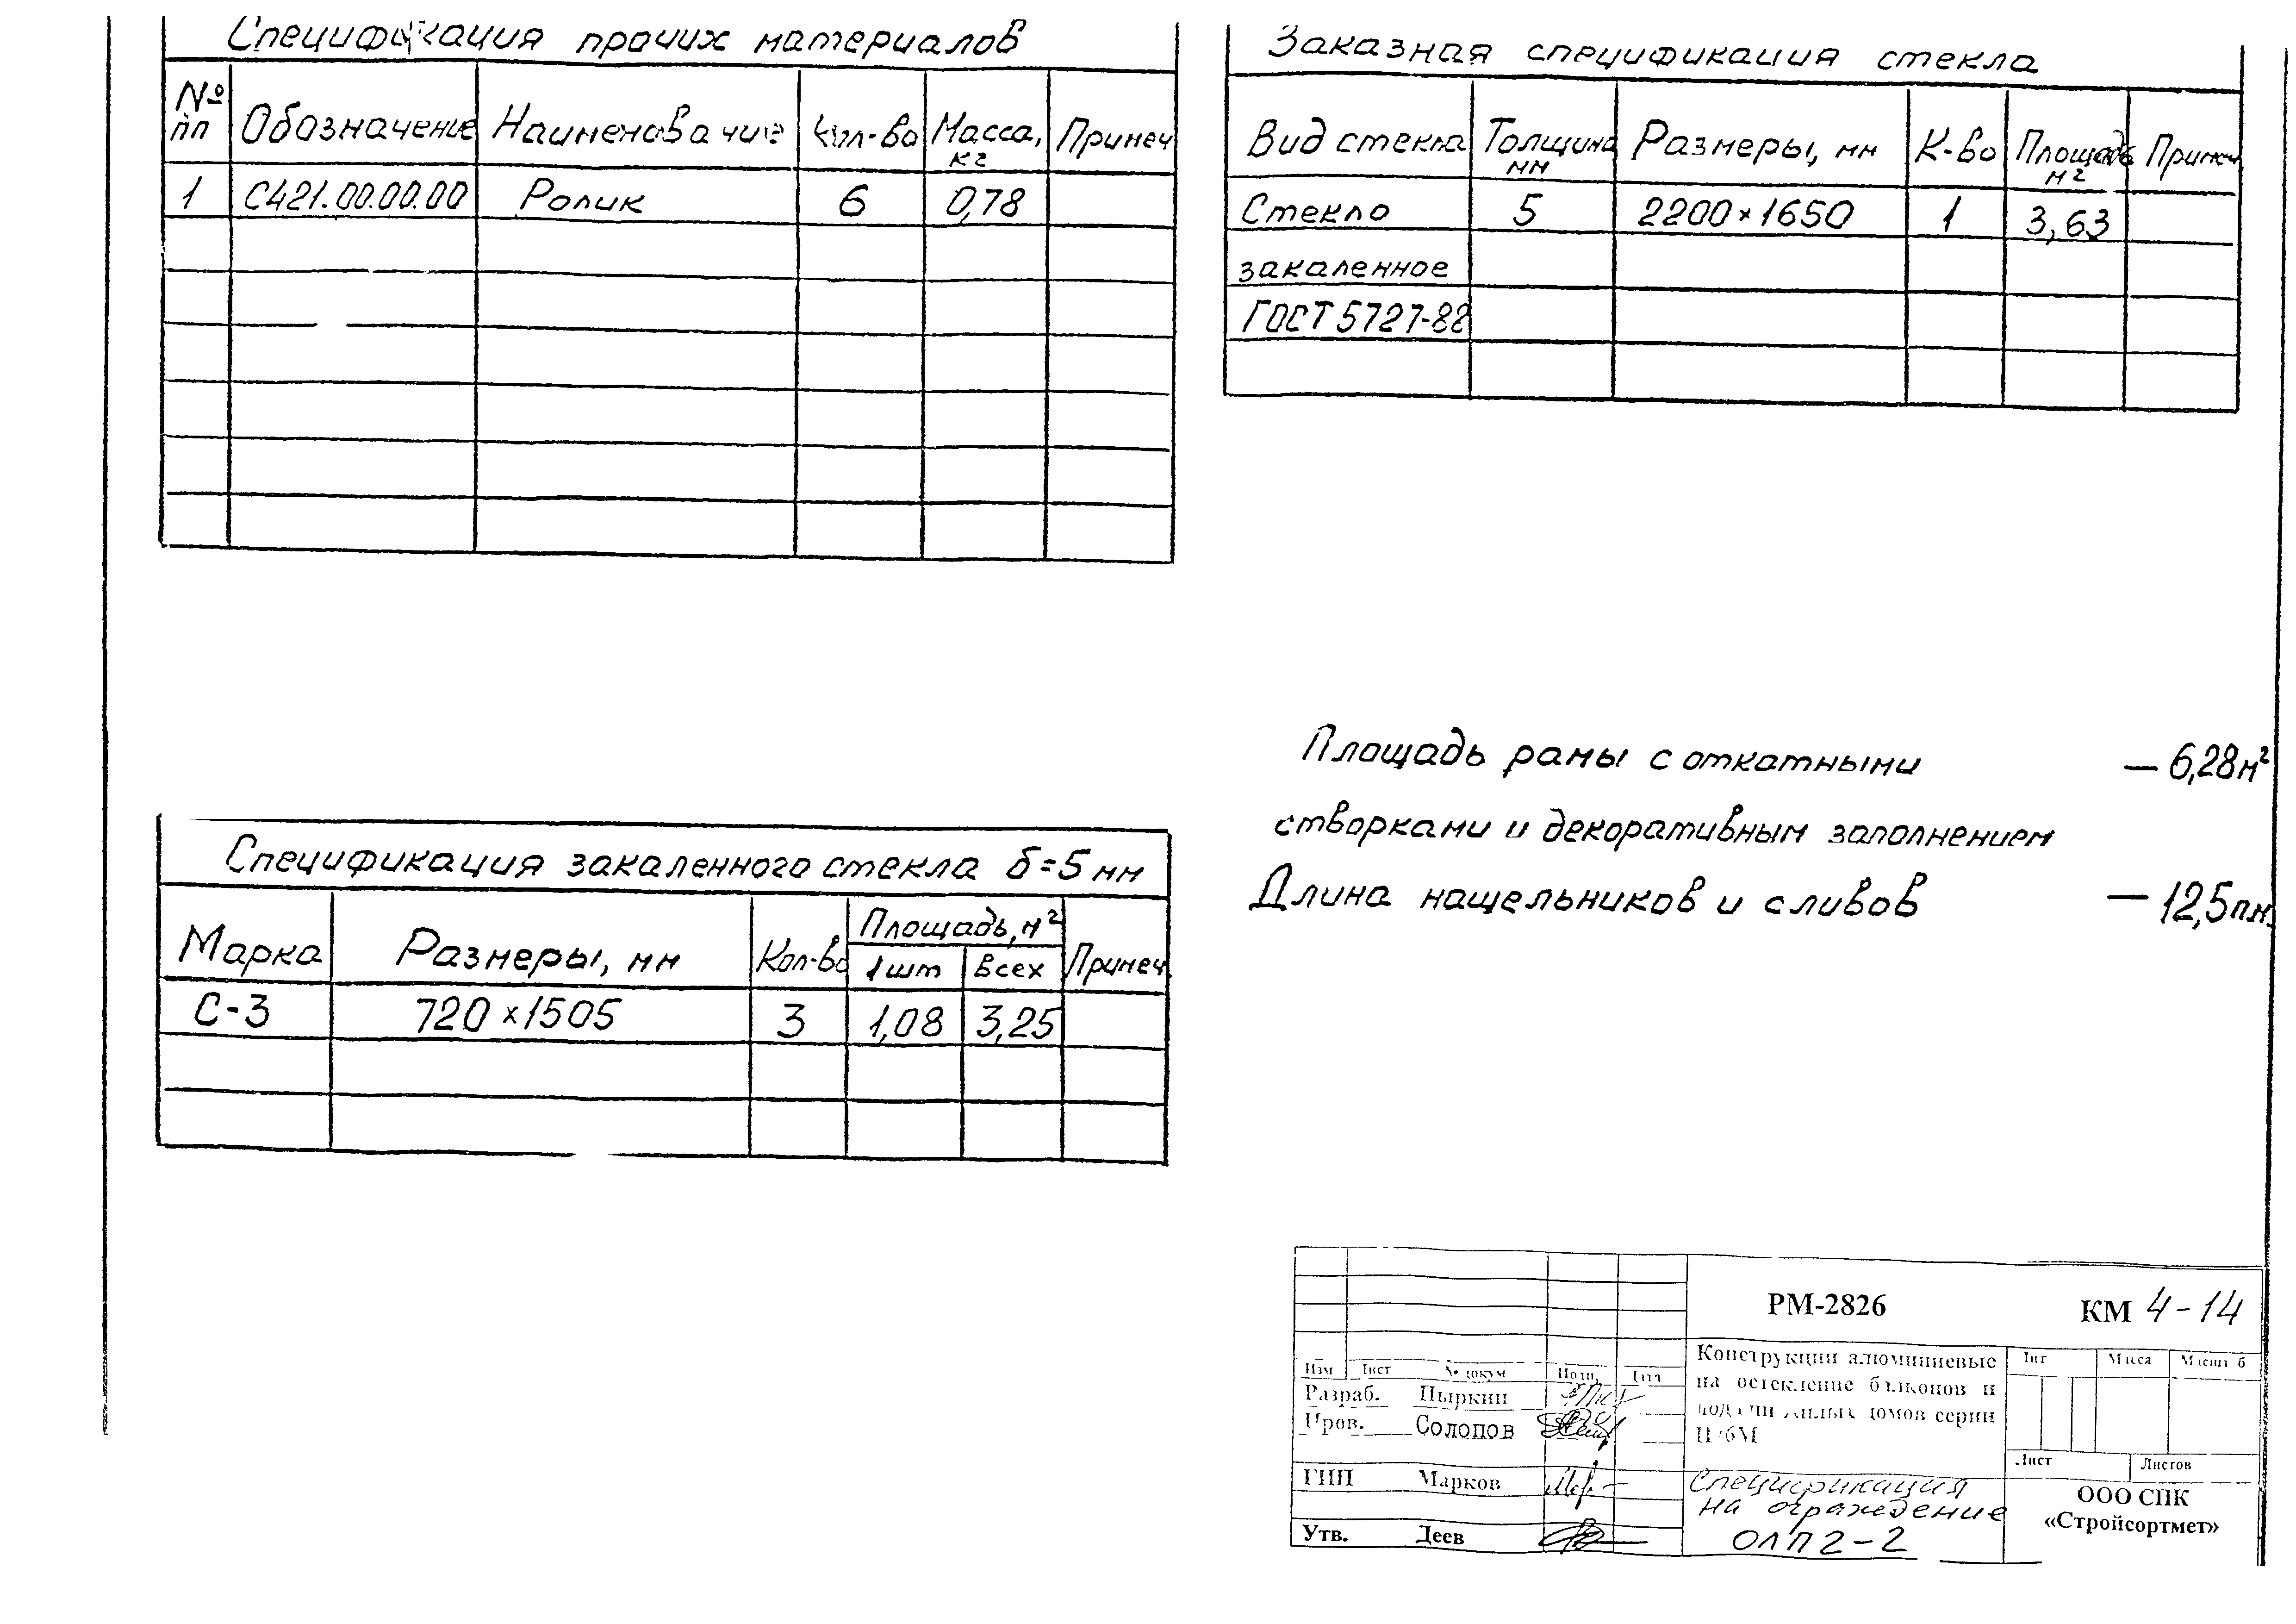 Спецификация прочих материалов
№ пп Обозначение Наименование Кол-во Масса, кг Примеч
1 С421.00.00.00 Ролик 6 0,78
Заказная спецификация стекла
Вид стекла Толщина мм Размеры, мм К-во Площадь м² Примеч
Стекло 5 2200×1650 1 3,63
закаленное
ГОСТ 5727-88
Площадь рамы с откатными — 6,28м²
створками и декоративным заполнением
Длина нащельников и сливов — 12,5п.м.
Спецификация закаленного стекла δ=5 мм
Марка Размеры, мм Кол-во Площадь, м² Примеч
1шт Всех
С-3 720×1505 3 1,08 3,25
РМ-2826 КМ 4-14
Изм Лист № докум Подп. Дата
Разраб. Пыркин
Пров. Солопов
ГИП Марков
Утв. Деев
Конструкции алюминиевые
на остекление балконов и
лоджий жилых домов серии
Спецификация
на ограждение
ОЛП2-2
Лит Масса Масшт б
Лист Листов
ООО СПК
«Стройсортмет»